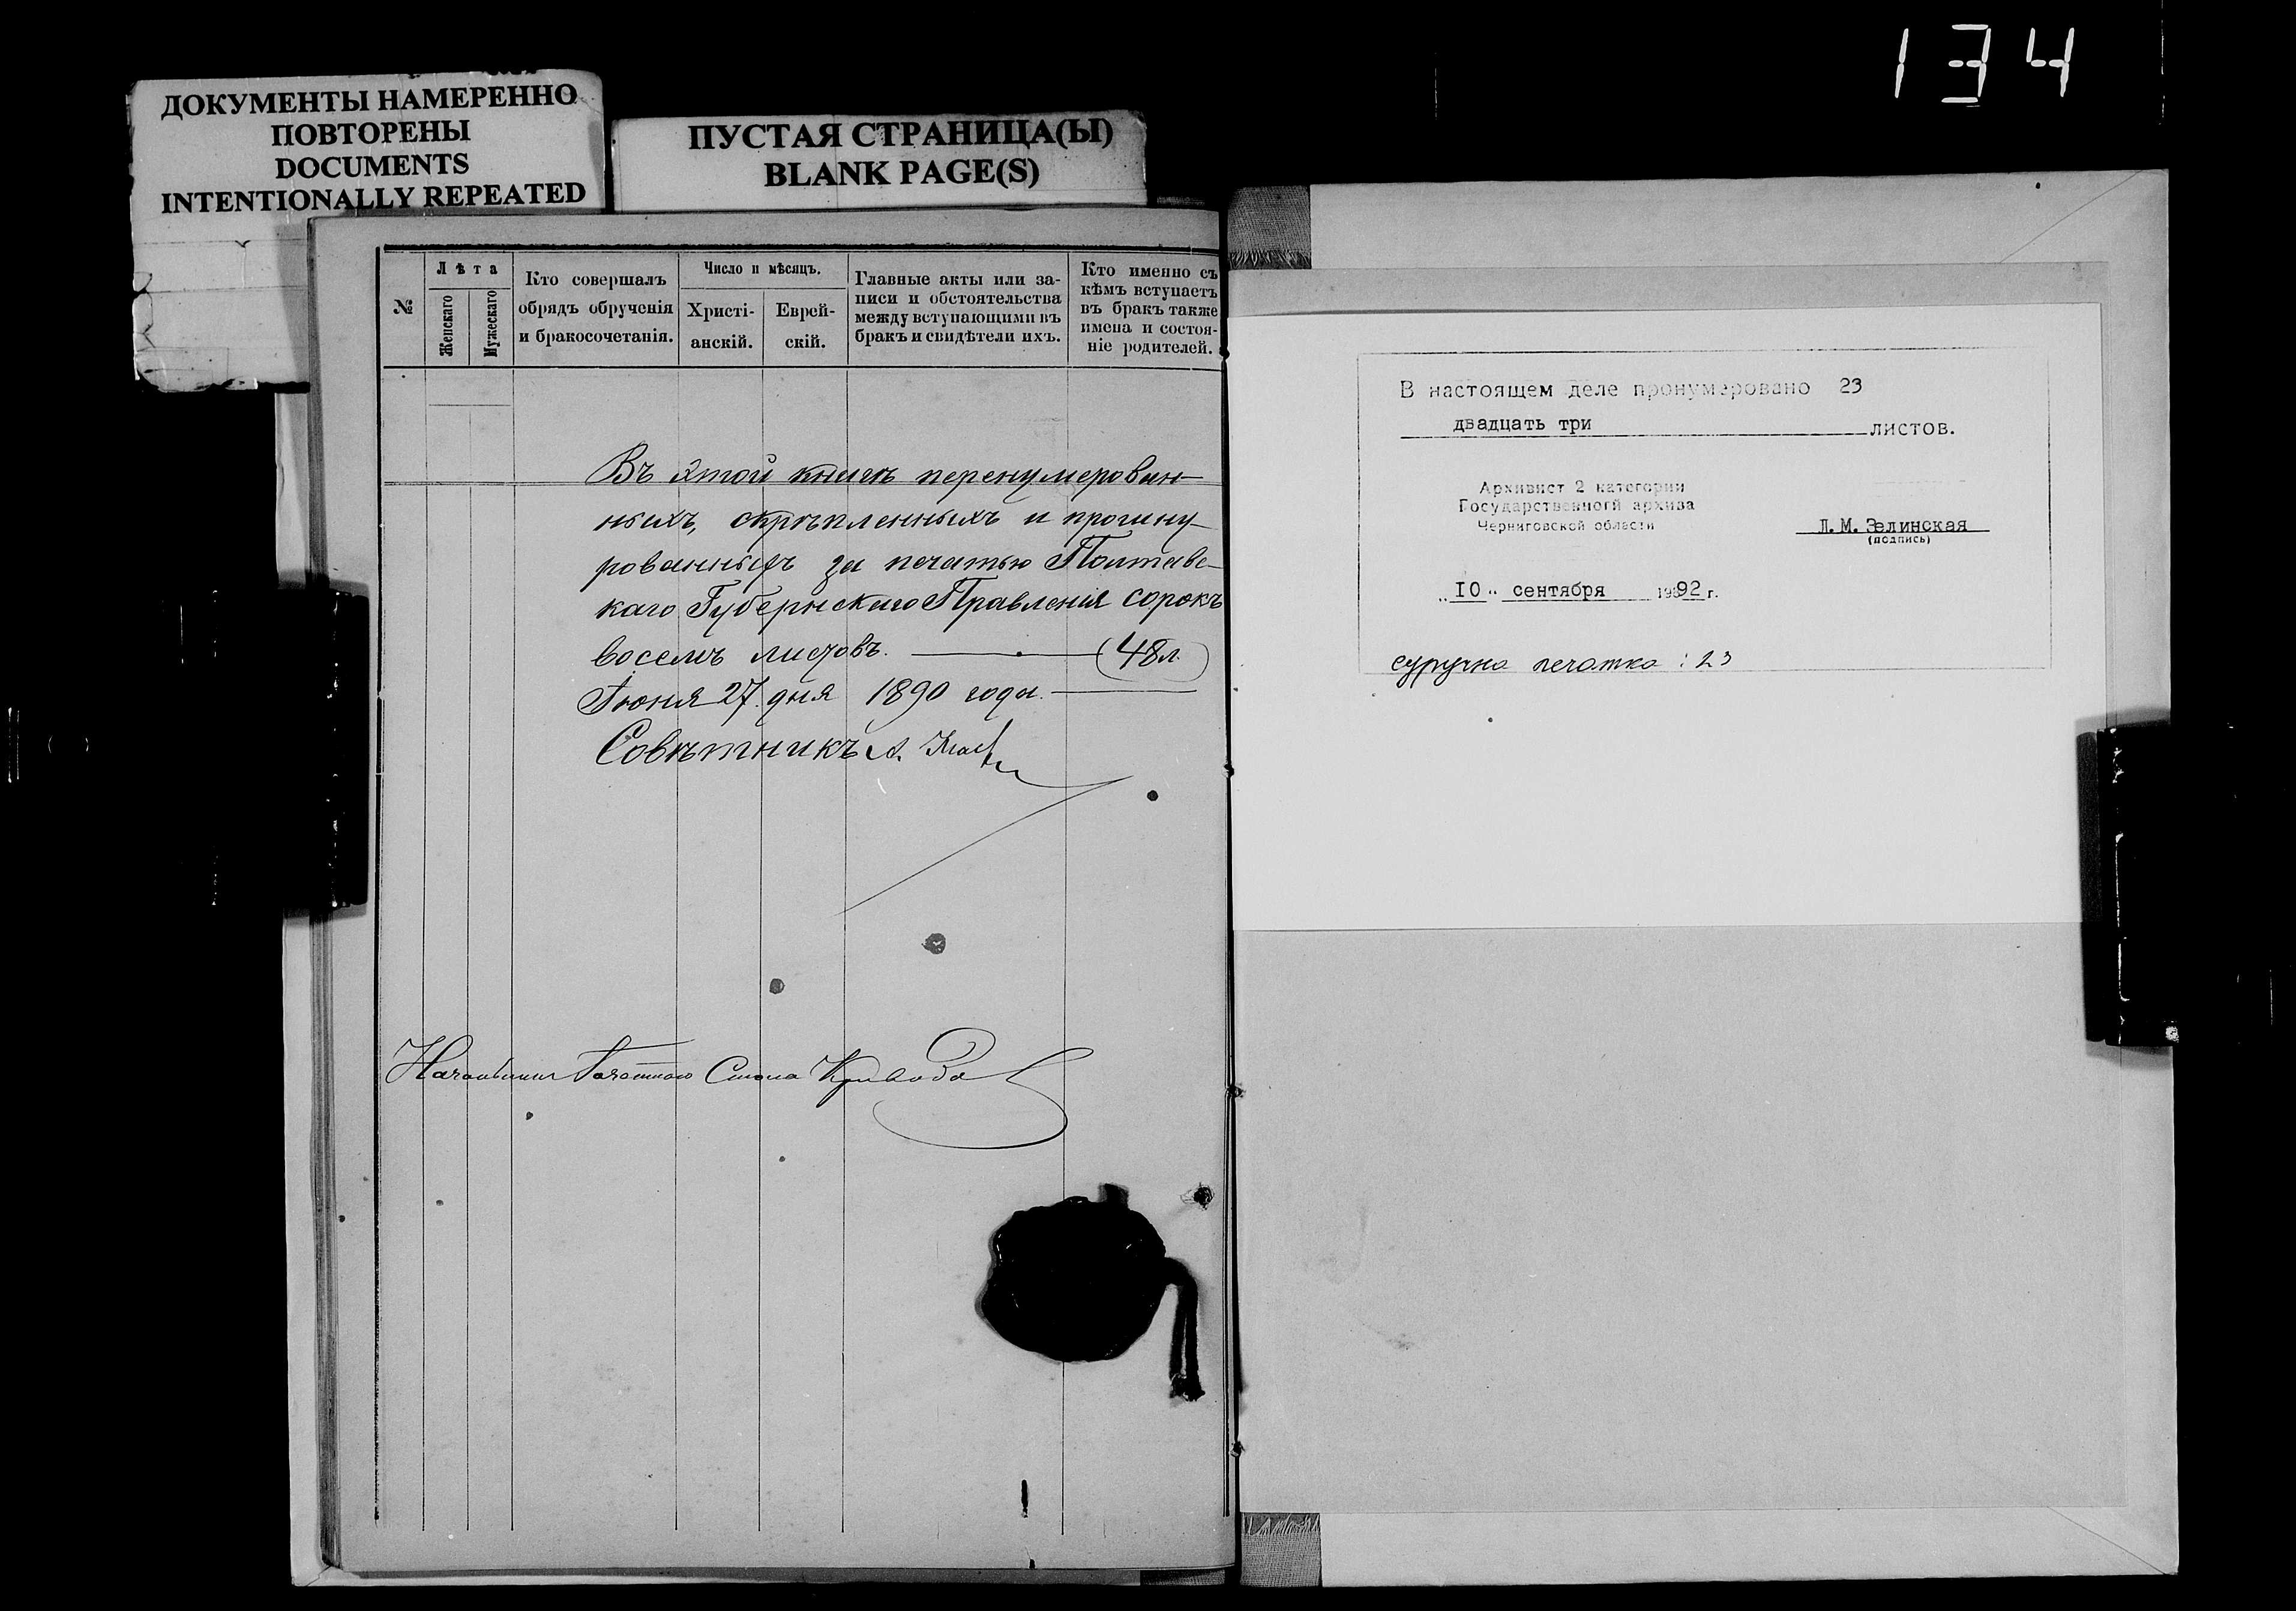 134
ДОКУМЕНТЫ НАМЕРЕННО
ПОВТОРЕНЫ
DOCUMENTS
INTENTIONALLY REPEATED
ПУСТАЯ СТРАНИЦА(Ы)
BLANK PAGE(S)
№
Лѣта
Женскаго
Мужескаго
Кто совершалъ
обрядъ обрученія
и бракосочетанія.
Число и мѣсяцъ.
Христі-
анскій.
Еврей-
скій.
Главные акты или за-
писи и обстоятельства
между вступающими въ
бракъ и свидѣтели ихъ.
Кто именно съ
кѣмъ вступаетъ
въ бракъ также
имена и состоя-
ніе родителей.
Въ этой книгѣ перенумерован-
ныхъ, скрѣпленныхъ и прошну-
рованныхъ за печатью Полтавс-
каго Губернскаго Правленія сорокъ
восемь листовъ. (48 л.)
Іюня 27 дня 1890 года.
Совѣтникъ А.
Стола
В настоящем деле пронумеровано 23
двадцать три листов.
Архивист 2 категории
Государственногй архива
Черниговской области
Л.М.Зелинская
(подпись)
"10" сентября 1992 г.
сургучна печатка : 23